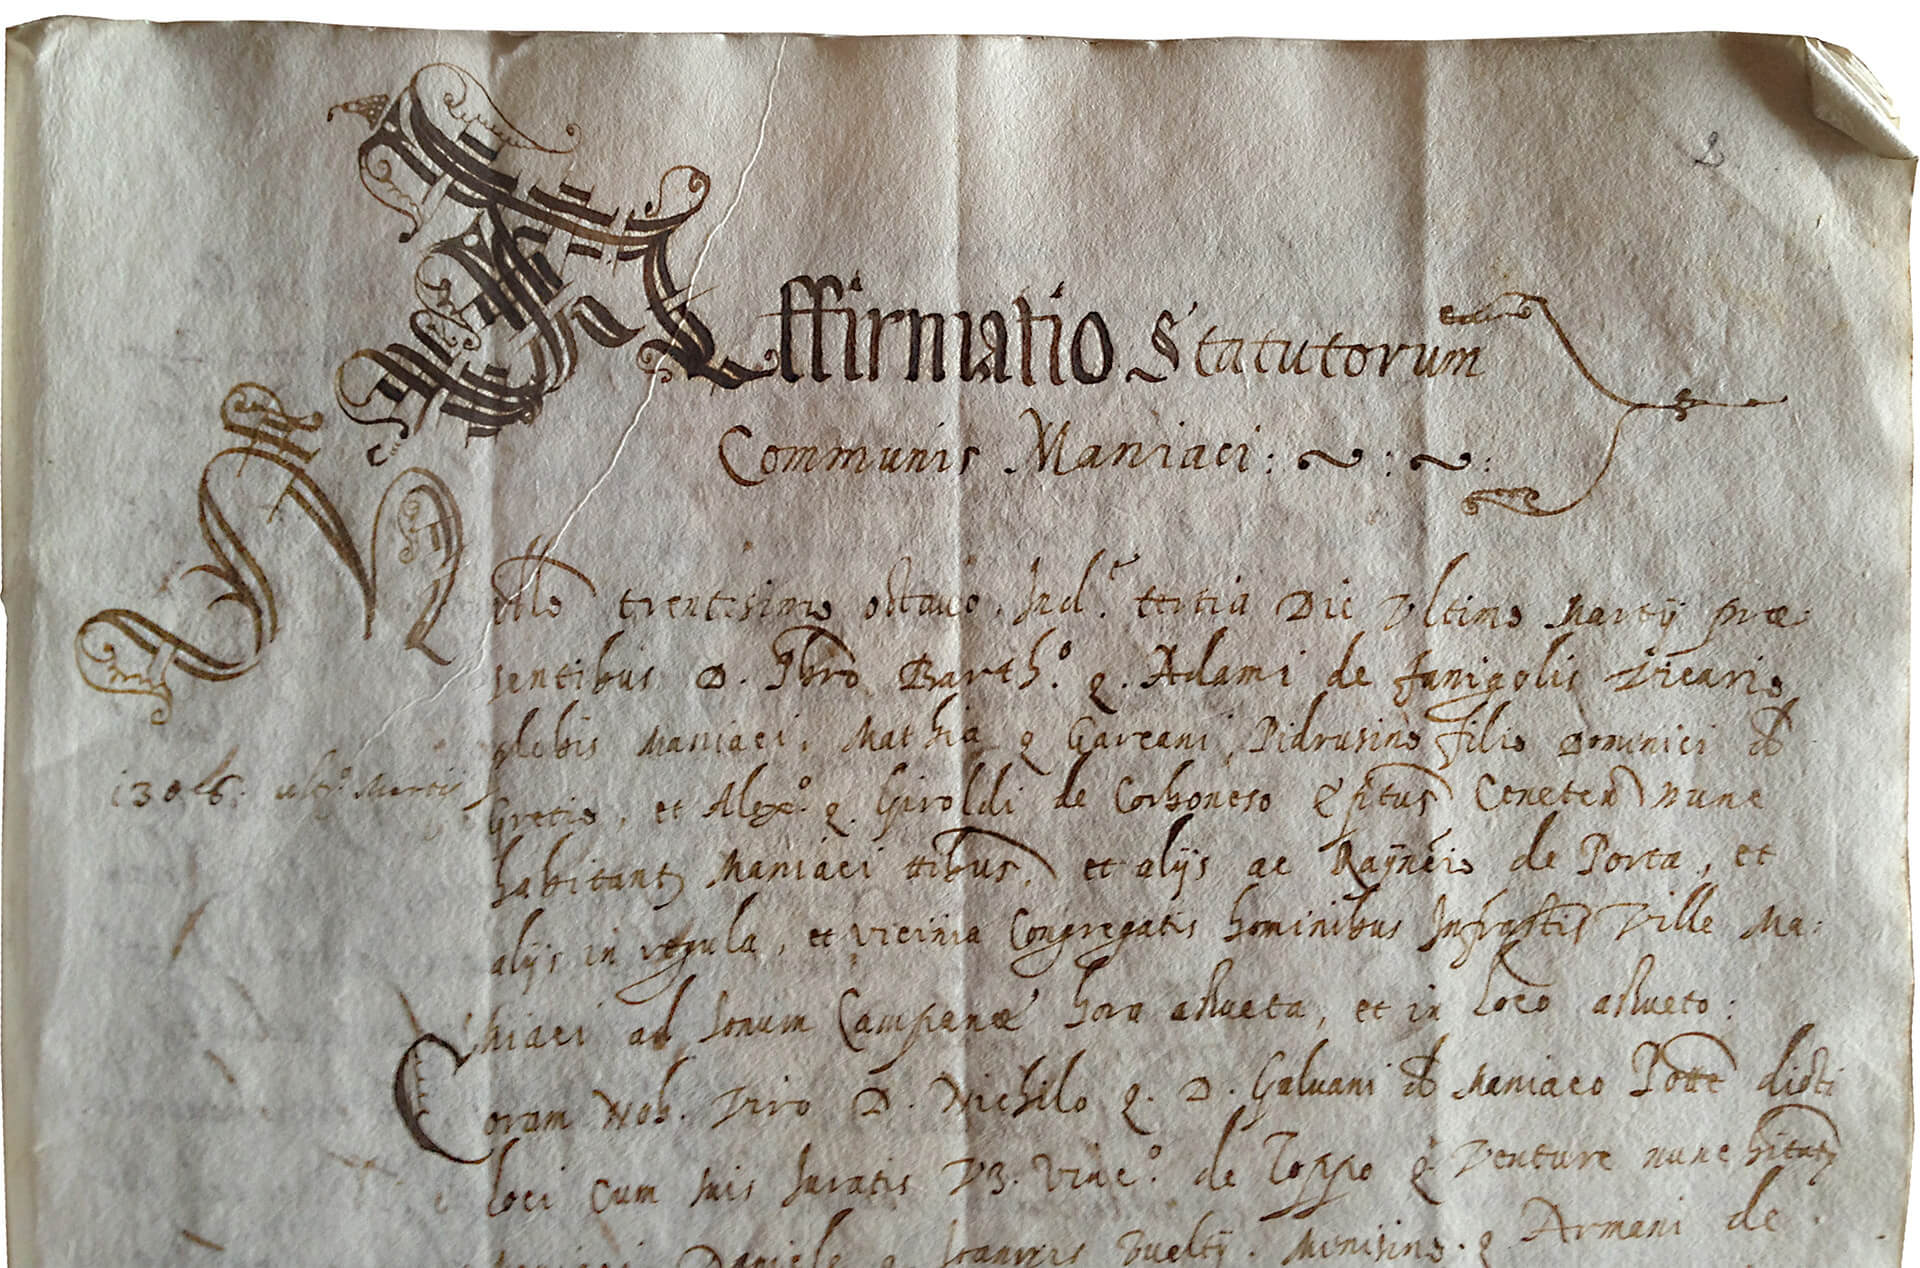 2
Affirmatio Statutorum
Communis Maniaci: ~ : ~ :
Millo trentesimo octavo. Ind.e tertia Die Ultimo Martij præ
sentibus D. Pbro Barth.o q. Adami de Fanigolis Vicario
plebis Maniaci, Mathia q Garcani, Pidrusino filio Dominici de
1306. ult.o Martii
Gretis, et Alex.o q. Giroldi de Corboneso nunc
habitant Maniaci ttibus, et alijs ac Raÿnerio de Porta, et
alijs in regula, et vicinia Congregatis hominibus Infrastis Ville Ma:
niaci ad sonum Campanæ hora assueta, et in loco assueto:
Coram Nob. Viro D. Nichilo q. D. Galvani de Maniaco Potte dicti
loci cum suis Juratis Vz. Vinc.o de Toppo q. Venture nunc
Daniele q Joannis Muniסino q Armani de